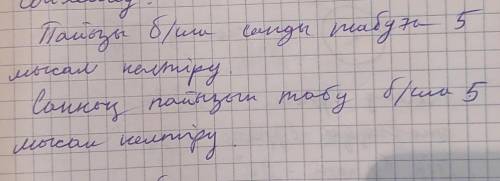 Пайызы б/ша санды табуға 5
мысал келтіру.
Санның пайызын табу б/ша 5
мысал келтіру.